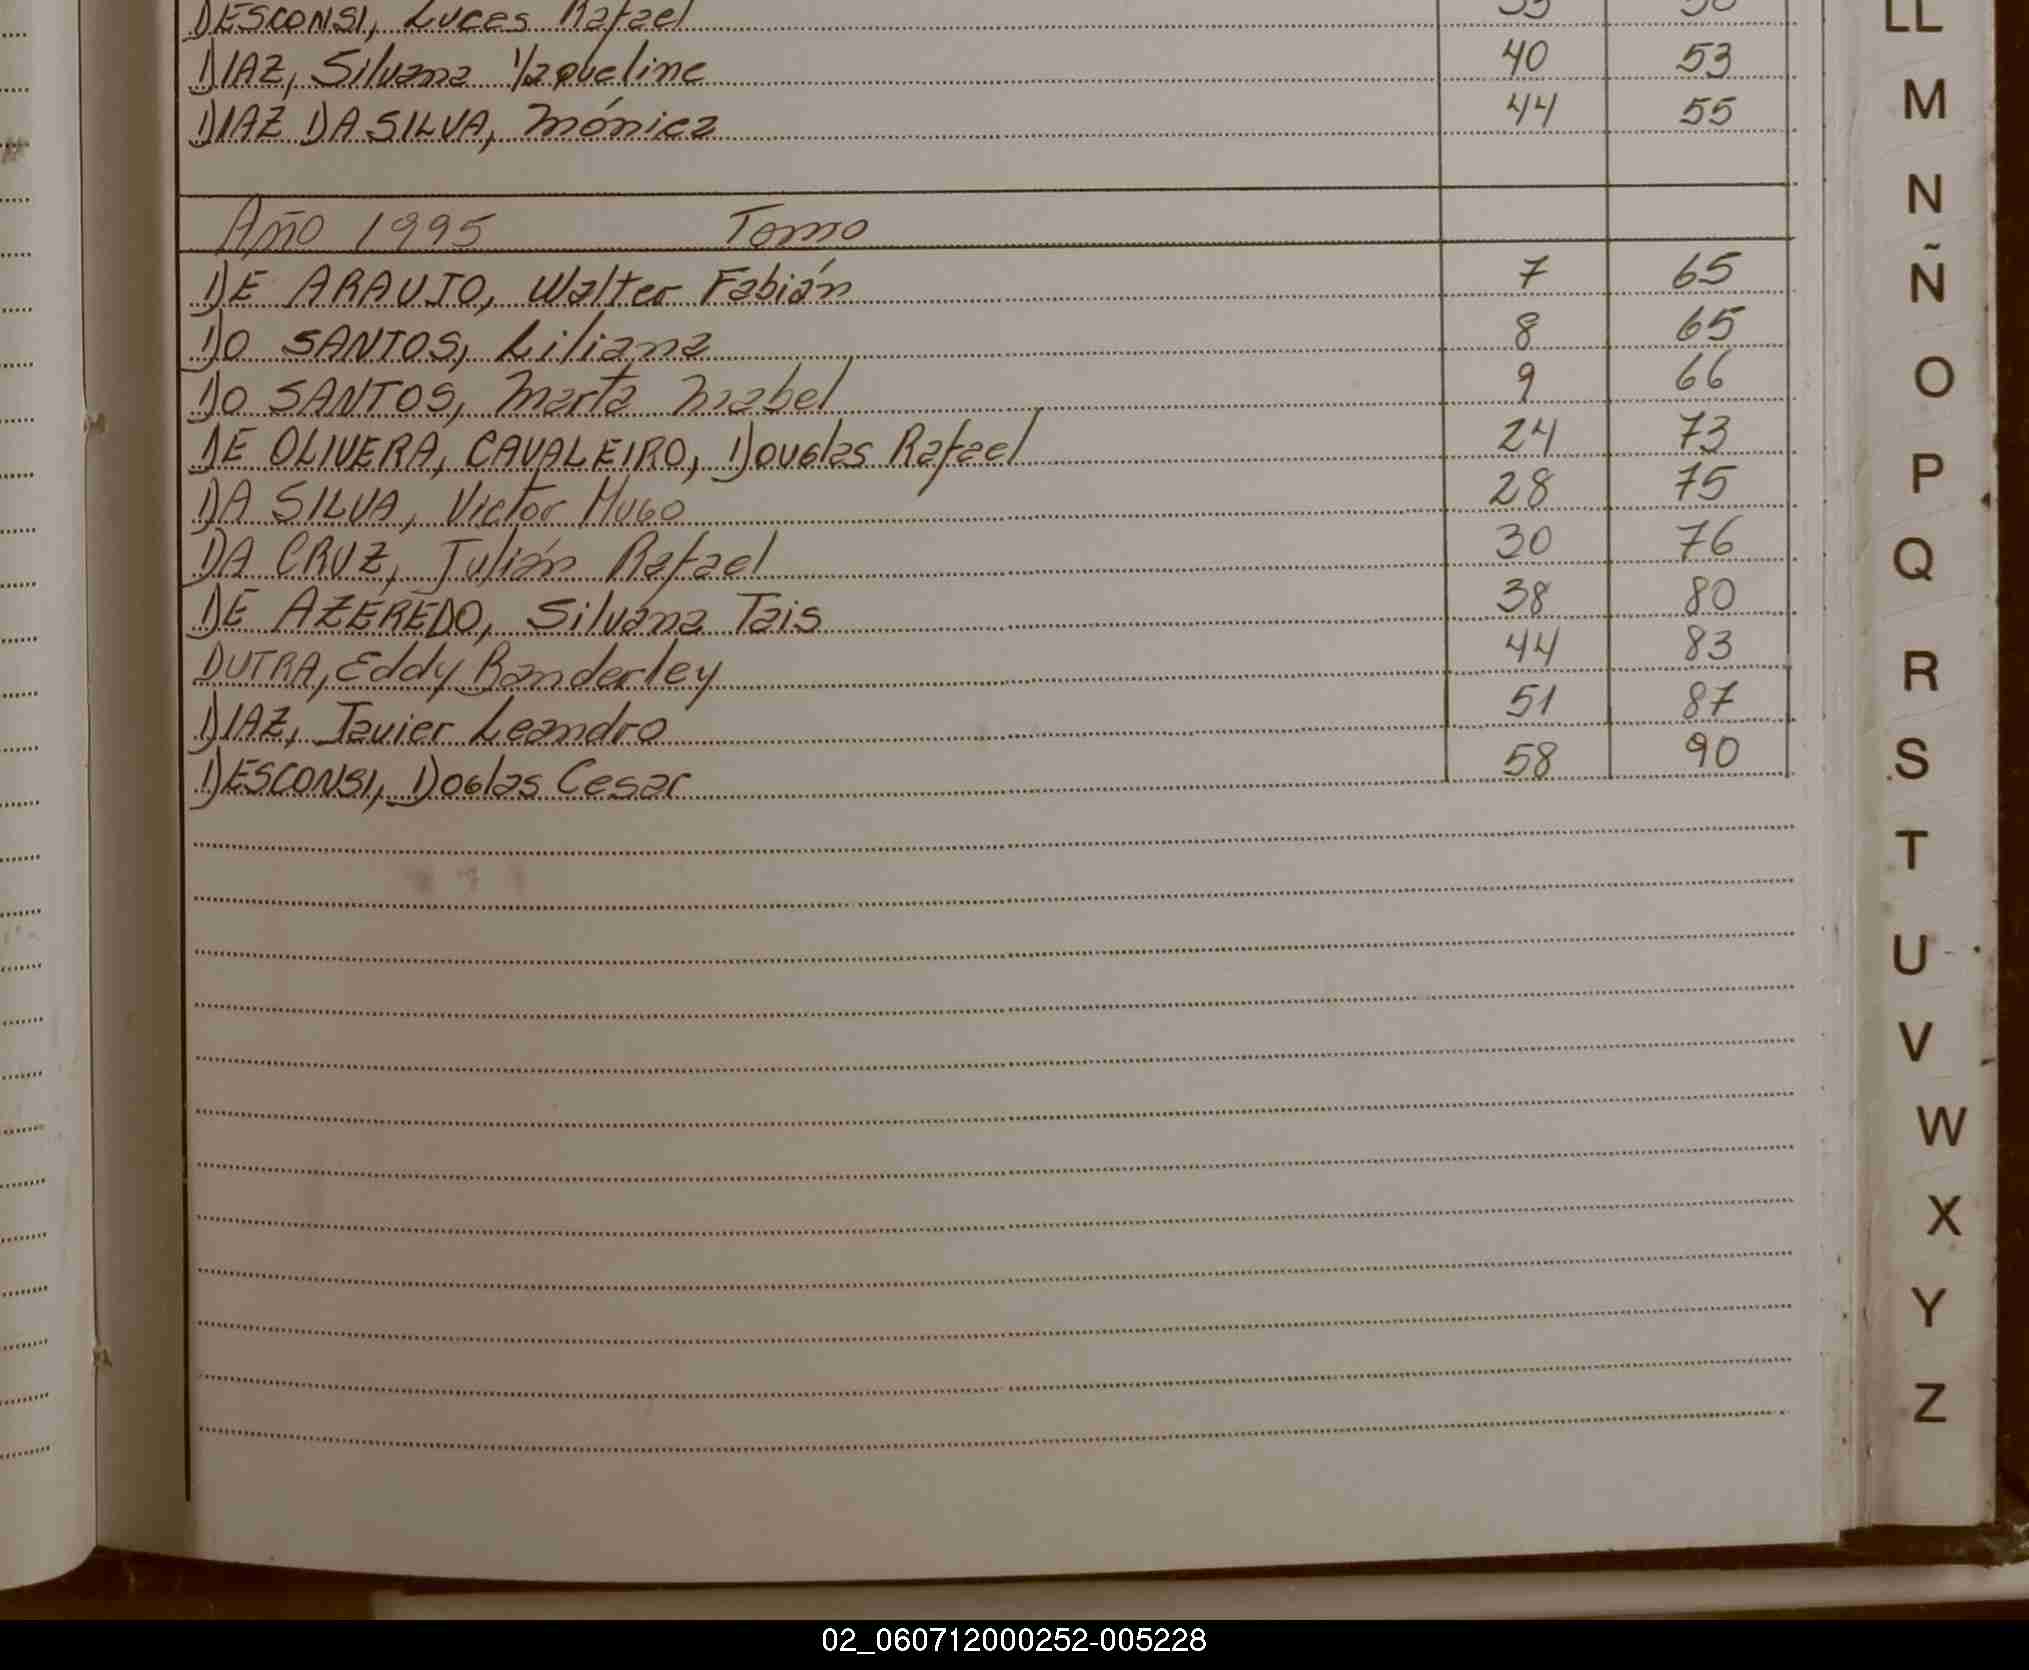 DESCONSI, Luces Rafael
DIAZ, Silvana Yaqueline 40 53
DIAZ DA SILVA, Mónica 44 55
Año 1995 Tomo
DE ARAUJO, Walter Fabián 7 65
DO SANTOS, Liliana 8 65
DO SANTOS, Marta Mabel 9 66
DE OLIVERA, CAVALEIRO, Douglas Rafael 24 73
DA SILVA, Victor Hugo 28 75
DA CRUZ, Julián Rafael 30 76
DE AZEREDO, Silvana Tais 38 80
DUTRA, Eddy Banderley 44 83
DIAZ, Javier Leandro 51 87
DESCONSI, Doglas Cesar 58 90
LL
M
N
Ñ
O
P
Q
R
S
T
U
V
W
X
Y
Z
02_060712000252-005228